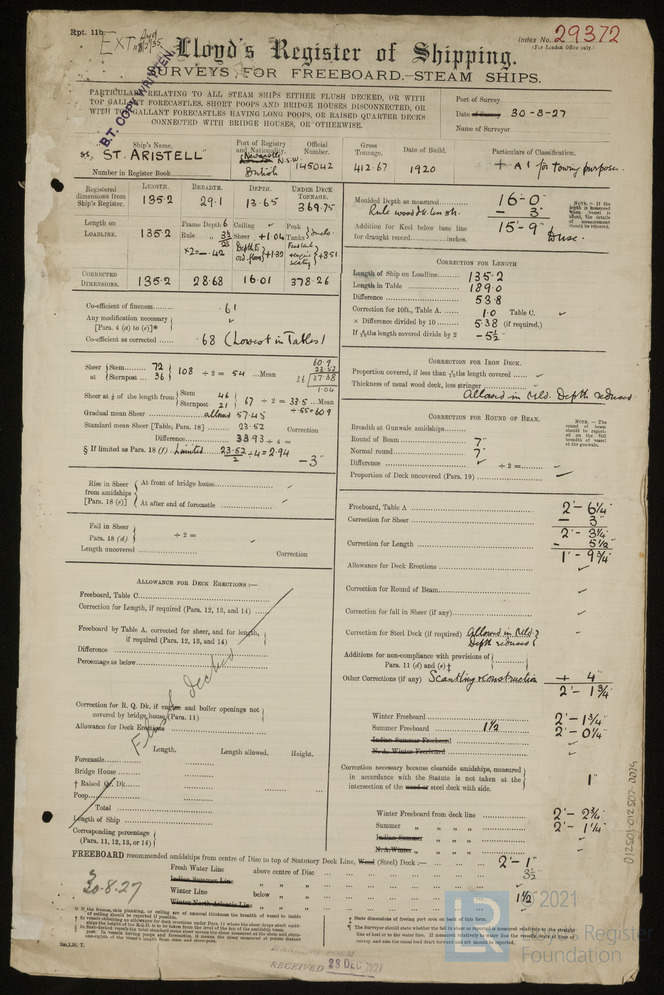 Rpt. 11b.
Index No. 29372
(For London Office only.)
B.T. COPY WRITTEN
Lloyd's Register of Shipping.
SURVEYS FOR FREEBOARD.—STEAM SHIPS.
PARTICULARS RELATING TO ALL STEAM SHIPS EITHER FLUSH DECKED, OR WITH
TOP GALLANT FORECASTLES, SHORT POOPS AND BRIDGE HOUSES DISCONNECTED, OR
WITH TOPGALLANT FORECASTLES HAVING LONG POOPS, OR RAISED QUARTER DECKS
CONNECTED WITH BRIDGE HOUSES, OR OTHERWISE.
Port of Survey
Date of Survey 30-8-27
Name of Surveyor
Ship's Name. Port of Registry and Nationality. Official Number. Gross Tonnage. Date of Build. Particulars of Classification.
ss. "ST. ARISTELL" Newcastle N.S.W. British 145042 412.67 1920 + A1 for Towing purposes.
Number in Register Book
Registered dimensions from Ship's Register. LENGTH. 135.2 BREADTH. 29.1 DEPTH. 13.65 UNDER DECK TONNAGE. 369.75
Length on LOADLINE. 135.2 Frame Depth 6 Rule Ceiling Sheer +1.04 Peak Tanks
×2 = -.42 +1.39 +8.51
CORRECTED DIMENSIONS. 135.2 28.68 16.01 378.26
Moulded Depth as measured 16-0
- 3
Addition for Keel below base line for draught record inches. 15-9
Co-efficient of fineness .61
Any modification necessary [Para. 4 (a) to (e)]*
Co-efficient as corrected .68 (Lowest in Tables)
CORRECTION FOR LENGTH
Length of Ship on Loadline 135.2
Length in Table 189.0
Difference 53.8
Correction for 10ft., Table A. 1.0 Table C.
× Difference divided by 10 5.38 (if required.)
If 6/10ths length covered divide by 2 -5½
Sheer at Stem 72 Sternpost 36 108 ÷ 2 = 54 Mean
Sheer at ⅛ of the length from Stem 46 Sternpost 21 67 ÷ 2 = 33.5 Mean
÷.55 = 60.9
60.9
23.52
36 37.38
1.04
Gradual mean Sheer allowed 57.45
Standard mean Sheer [Table, Para. 18] 23.52 Correction
Difference 33.93 ÷ 4 =
§ If limited as Para. 18 (f) Limited 23.52/2 ÷ 4 = 2.94 -3"
CORRECTION FOR IRON DECK.
Proportion covered, if less than 7/10ths length covered
Thickness of usual wood deck, less stringer
Allowed in Mld. Depth reduced
CORRECTION FOR ROUND OF BEAM.
Breadth at Gunwale amidships
Round of Beam 7"
Normal round 7"
Difference ÷ 2 =
Proportion of Deck uncovered (Para. 19)
Rise in Sheer from amidships [Para. 18 (e)] At front of bridge house
At after end of forecastle
Fall in Sheer Para. 18 (d) ÷ 2 =
Length uncovered Correction
ALLOWANCE FOR DECK ERECTIONS:—
Freeboard, Table C.
Correction for Length, if required (Para. 12, 13, and 14)
Freeboard by Table A. corrected for sheer, and for length, if required (Para. 12, 13, and 14)
Difference
Percentage as below
Correction for R. Q. Dk. if engine and boiler openings not covered by bridge house (Para. 11)
Allowance for Deck Erections
Flush decked
Length. Length allowed. Height.
Forecastle
Bridge House
† Raised Qr. Dk.
Poop
Total
Length of Ship
Corresponding percentage (Para. 11, 12, 13, or 14)
Freeboard, Table A 2'-6¼"
Correction for Sheer - 3"
2'-3¼"
Correction for Length - 5½"
1'-9¾"
Allowance for Deck Erections
Correction for Round of Beam
Correction for fall in Sheer (if any)
Correction for Steel Deck (if required) Allowed in Mld. Depth reduced
Additions for non-compliance with provisions of Para. 11 (d) and (e) †
Other Corrections (if any) Scantling & Construction + 4"
2'-1¾"
Winter Freeboard 2'-1¾"
Summer Freeboard 1½ 2'-0¼"
Indian Summer Freeboard
N. A. Winter Freeboard
Correction necessary because clearside amidships, measured in accordance with the Statute is not taken at the intersection of the wood or steel deck with side. 1"
Winter Freeboard from deck line 2'-2¾"
Summer 2'-1¼"
Indian Summer
N. A. Winter
FREEBOARD recommended amidships from centre of Disc to top of Statutory Deck Line, Wood (Steel) Deck:— 2'-1"
Fresh Water Line above centre of Disc 3½
Indian Summer Line
Winter Line below 1½"
Winter North Atlantic Line
30-8-27
† State dimensions of freeing port area on back of this form.
RECEIVED 28 DEC 1921
012501-012507-0074
LR
© 2021
Lloyd's Register
Foundation